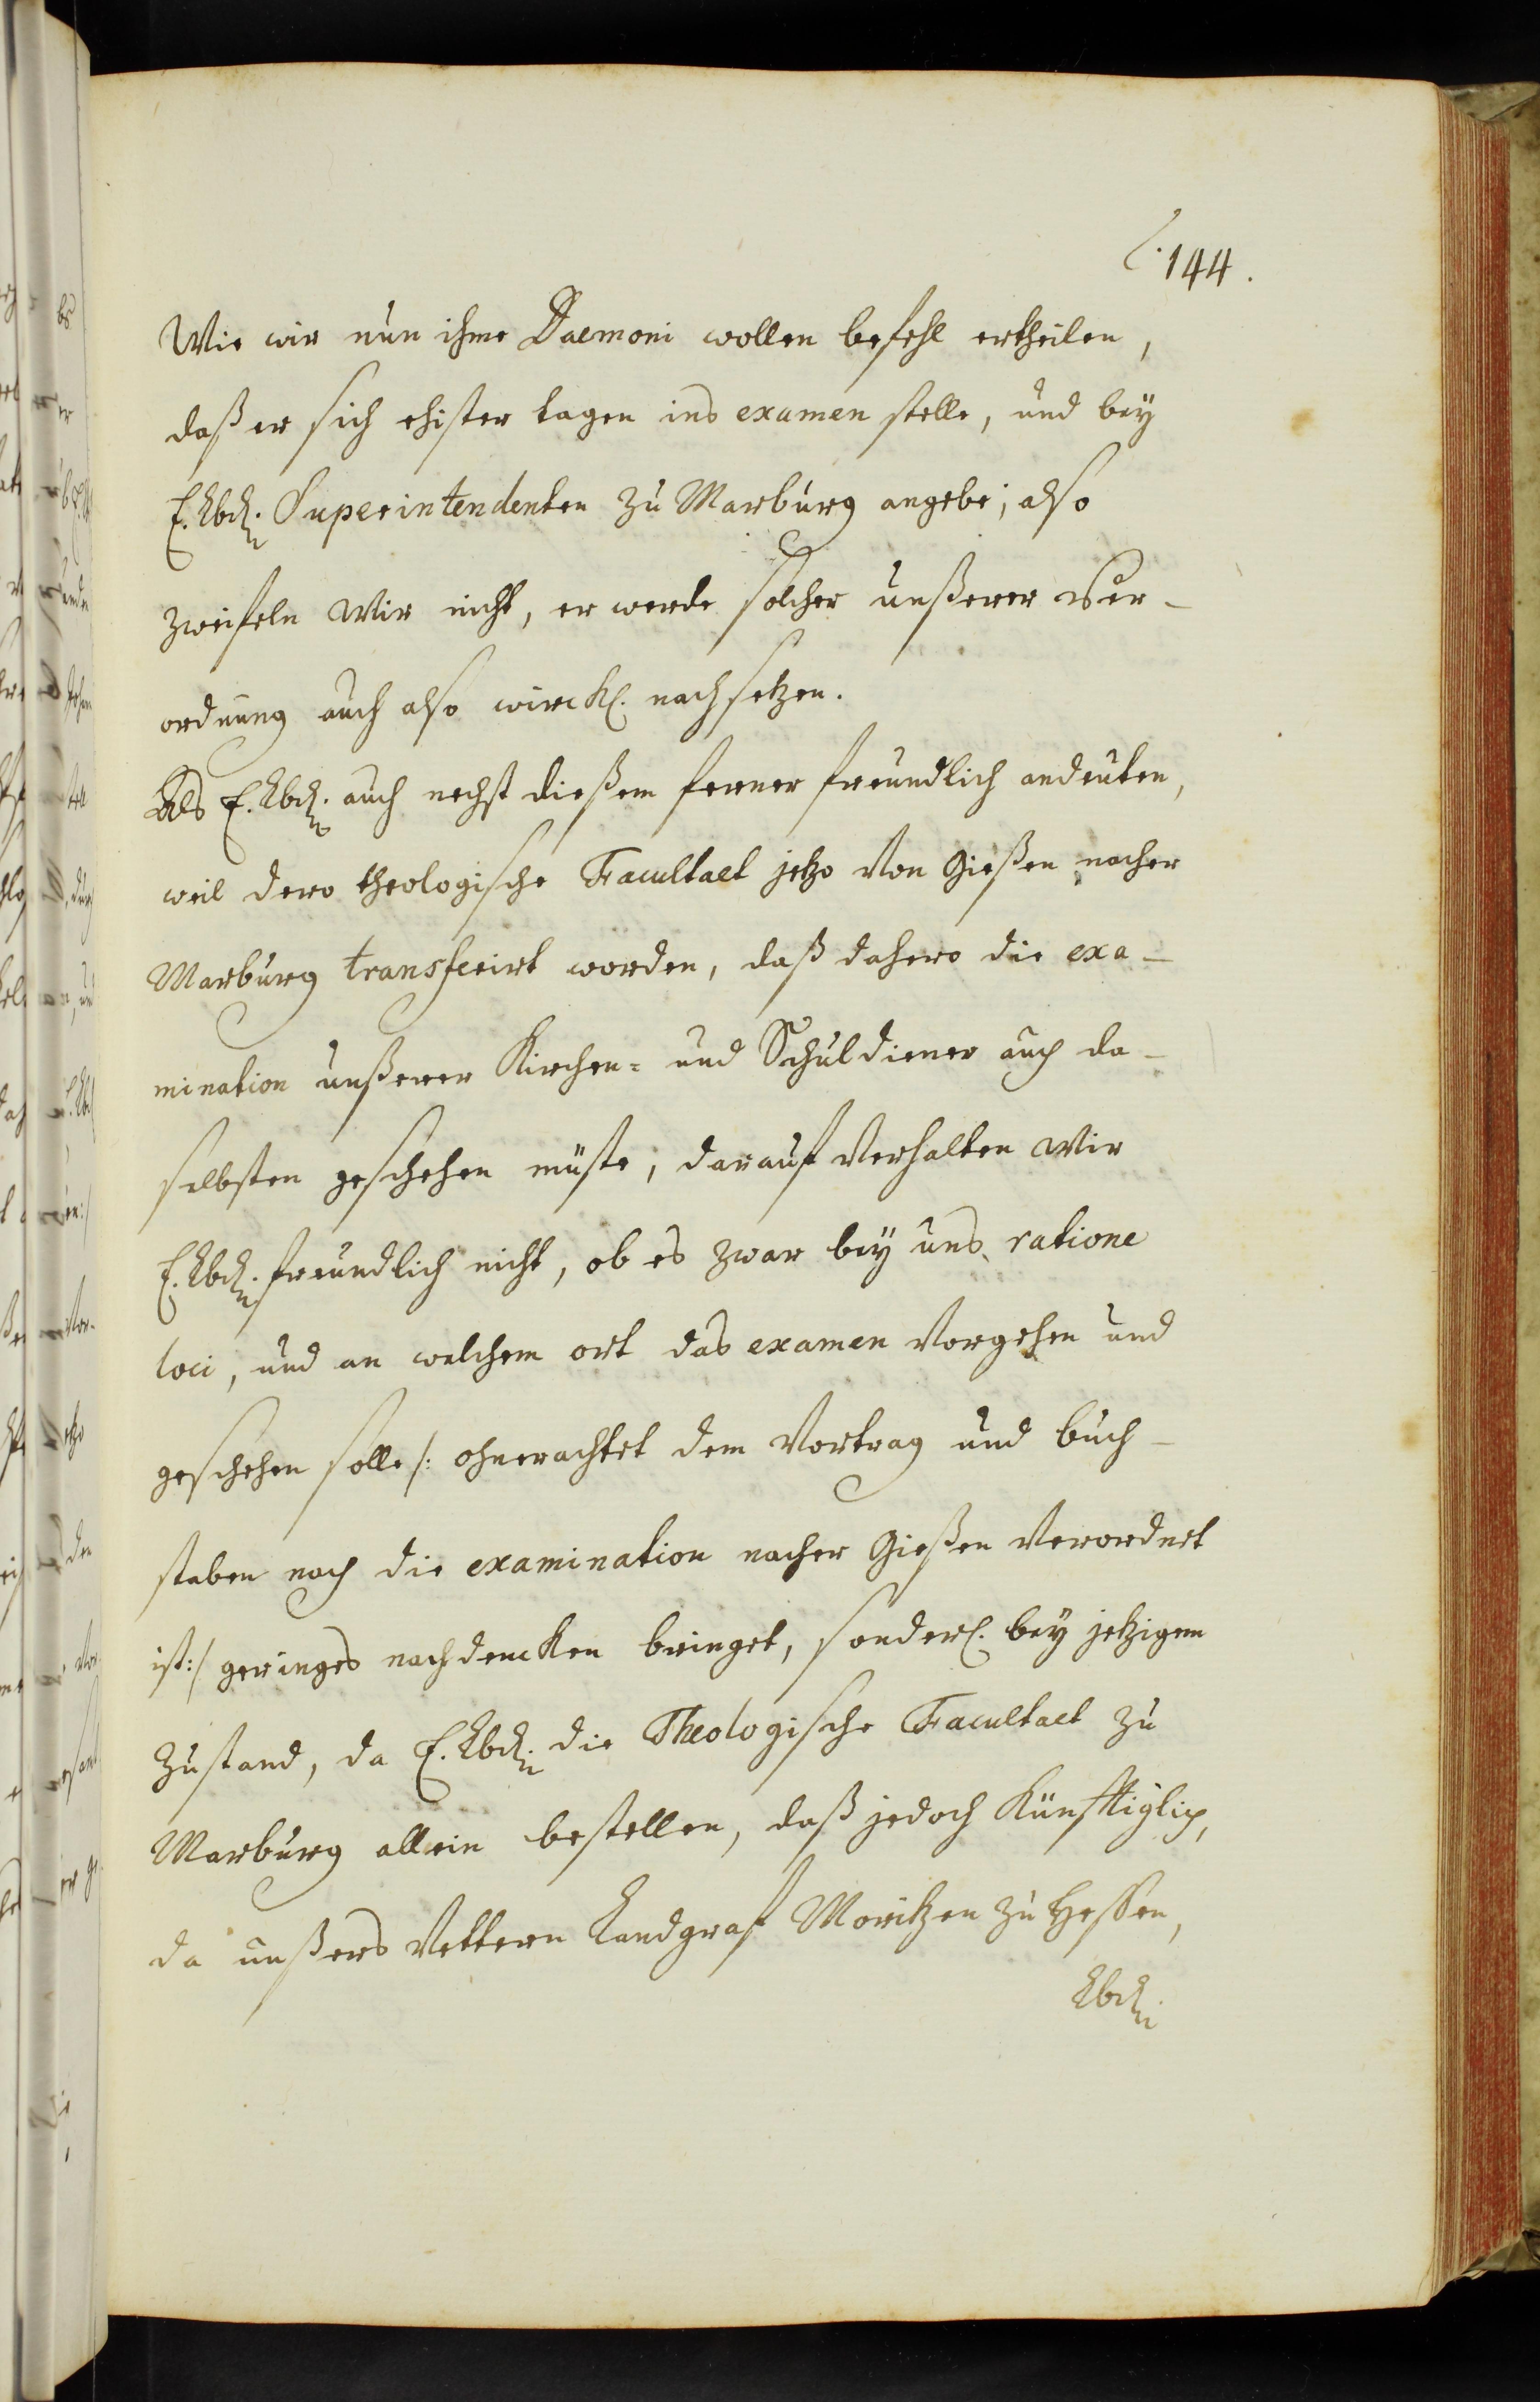 144.
Wie wir nun ihme Daemoni wollen befehl ertheilen,
daß er sich ehister tagen ins examen stelle, und bey
E. Lbd. Superintendenten zu Marburg angebe; also
zweifeln Wir nicht, er werde solcher unßerer Ver-
ordnung auch also wirckl. nachsetzen.
Als E. Lbd. auch nechst dießem ferner freundlich andeuten,
weil dero theologische Facultaet jetzo von Gießen nacher
Marburg transferirt worden, daß dahero die exa-
mination unßerer Kirchen- und Schuldiener auch da-
selbsten geschehen müste; darauf Verhalten Wir
E. Lbd. freundlich nicht, ob es zwar bey uns ratione
loci, und an welchem ort das examen Vorgehen und
geschehen solle /: ohnerachtet dem Vortrag und buch-
staben nach die examination nacher Gießen Verordnet
ist :/ geringes nachdencken bringet, sonderl. bey jetzigem
Zustand, da E. Lbd. die Theologische Facultaet zu
Marburg allein bestellen, daß jedoch Künfftiglich,
da unßers Vettern Landgraf Moritzen zu Hessen,
Lbd.